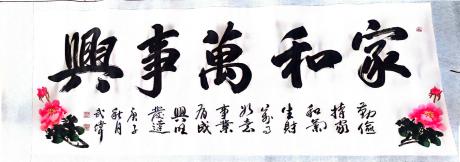 家和萬事興
勤儉
持家
和氣
生財
萬事
如意
事業
有成
興旺
發達
庚子
秋月